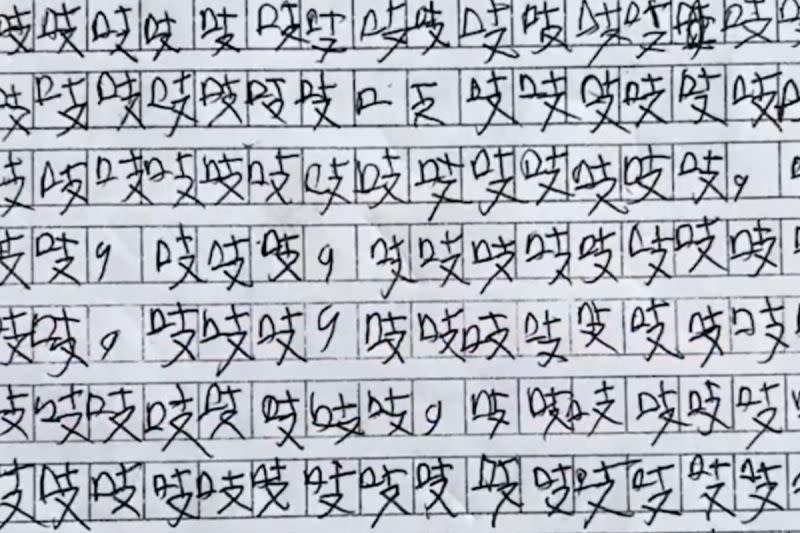 吱吱吱吱吱吱吱吱吱吱吱吱吱吱
吱吱吱吱吱吱吱口吱吱吱吱吱吱
吱吱吱吱吱吱吱吱吱吱吱吱吱吱，
吱吱，吱吱吱，吱吱吱吱吱吱吱吱
吱吱，吱吱吱，吱吱吱吱吱吱吱吱
吱吱吱吱吱吱吱吱，吱吱吱吱吱吱
吱吱吱吱吱吱吱吱吱吱吱吱吱吱吱